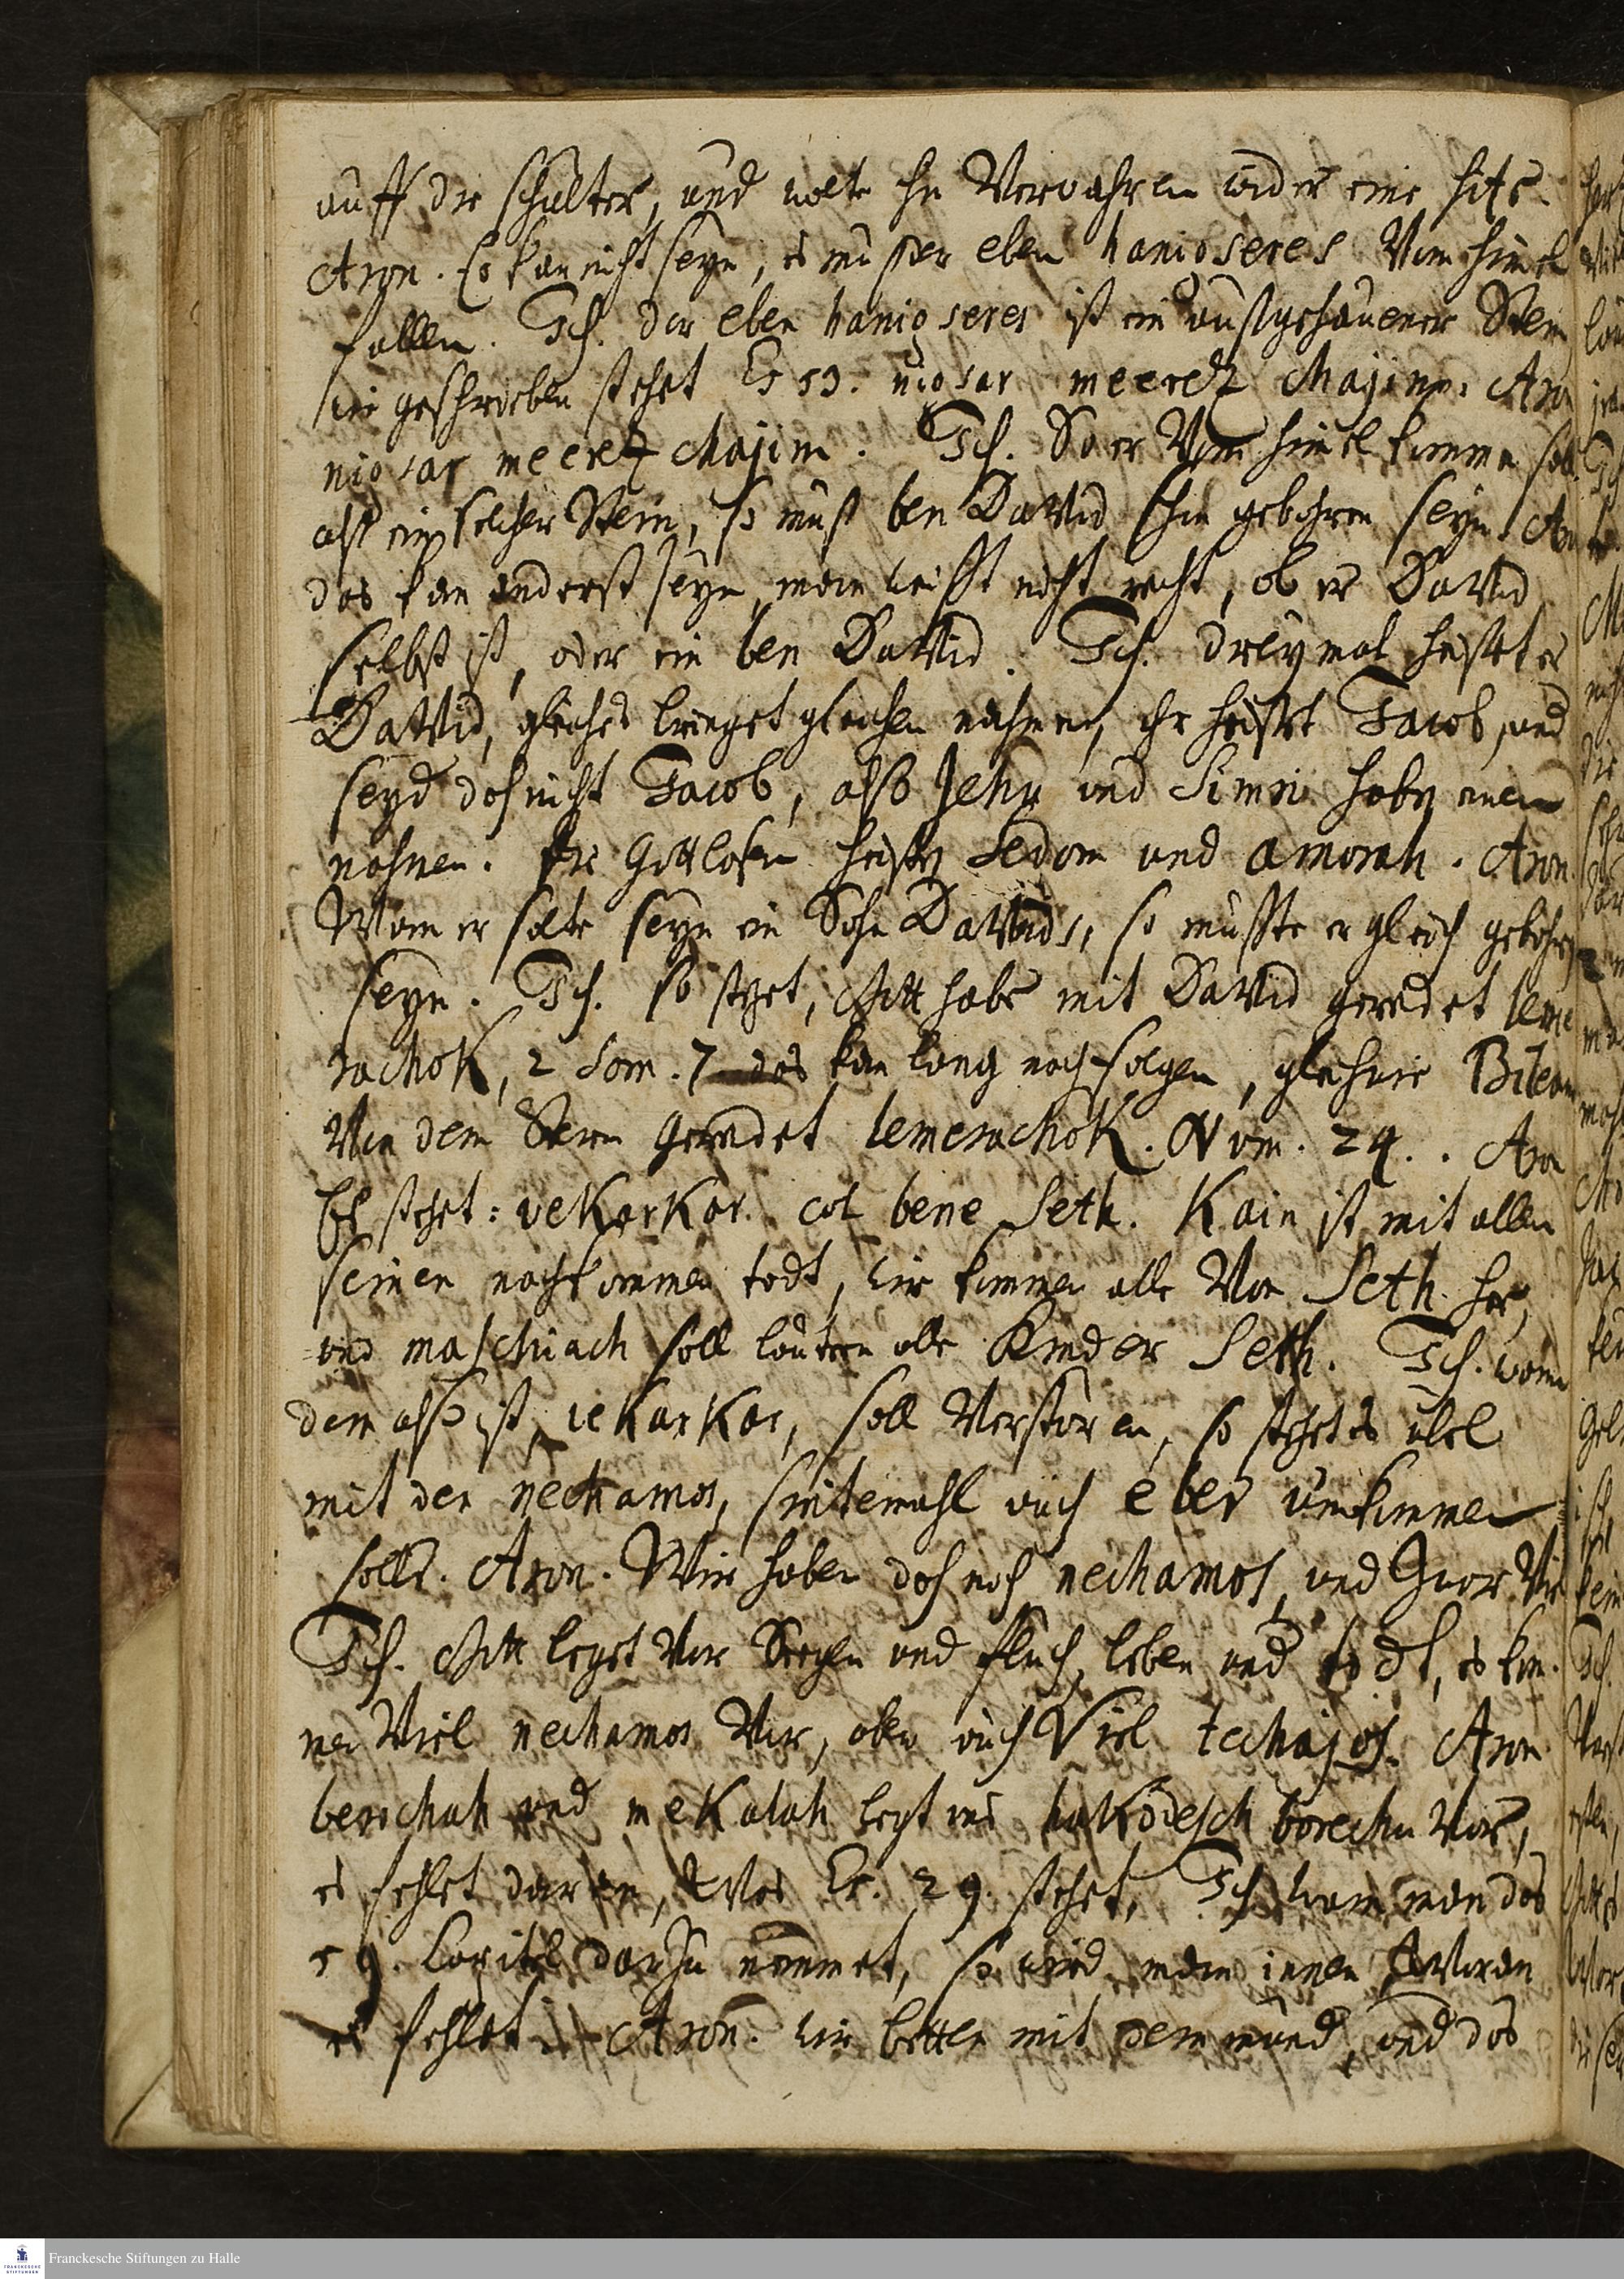 auff die schulter, und wolte ihn Verwahren wider eine hitz.
Aron. Es kan nicht seyn, es muß der eben hanigseres Vom himel
fallen. Ich. der eben hanigseres ist ein außgehauener Stein,
wie geschrieben stehet Es 53. nigsar meeretz Chajim. Aron
nigsar meeretz Chajim. Ich. So er Vom himel kommen soll
alß ein solcher Stein, so muß ben David schon gebohren seyn. Aron
das kan anderst seyn, man weisst nicht recht, ob er David
selbst ist, oder ein ben David. Ich. dreymal heisset er
David, gleiches bringet gleichen nahmen, ihr heisset Jacob, und
seyd doch nicht Jacob, also Jehu und Simri haben einen
nahmen. die Gottlosen heissen Sedom und Amorah. Aron.
Wann er solte seyn ein Sohn Davids, so müsste er gleich gebohren
seyn. Ich. so stehet, Gott habe mit David geredet leme
rachok, 2 Sam. 7 das kan lang nach folgen, gleich wie Bileam
Von dem Stern geredet lemerachok. Num. 24. Aron
Es stehet: vekarkar col bene Seth. Kain ist mit allen
seinen nachkommen todt, wir kommen alle Von Seth her,
und maschiach soll läutern alle Kinder Seth. Ich. wann
dem also ist, vekarkar, soll Verstören, so stehet es übel
mit den nechamos, sintemahl auch eber umkommen
solle. Aron. Wir haben doch noch nechamos, und zwar Viel
Ich. Gott leget Vor Seegen und fluch, leben und todt, es kom-
men Viel nechamos Vor, aber auch Viel techajos. Aron
berachah und mekalah legt uns hakodesch borechu Vor,
es fehlet daran, was Es. 29. stehet, Ich wann man das
59. Capitel darzu nimmet, so wird man innen woran
es fehlet. Aron. wir betten mit dem mund, und das
Franckesche Stiftungen zu Halle